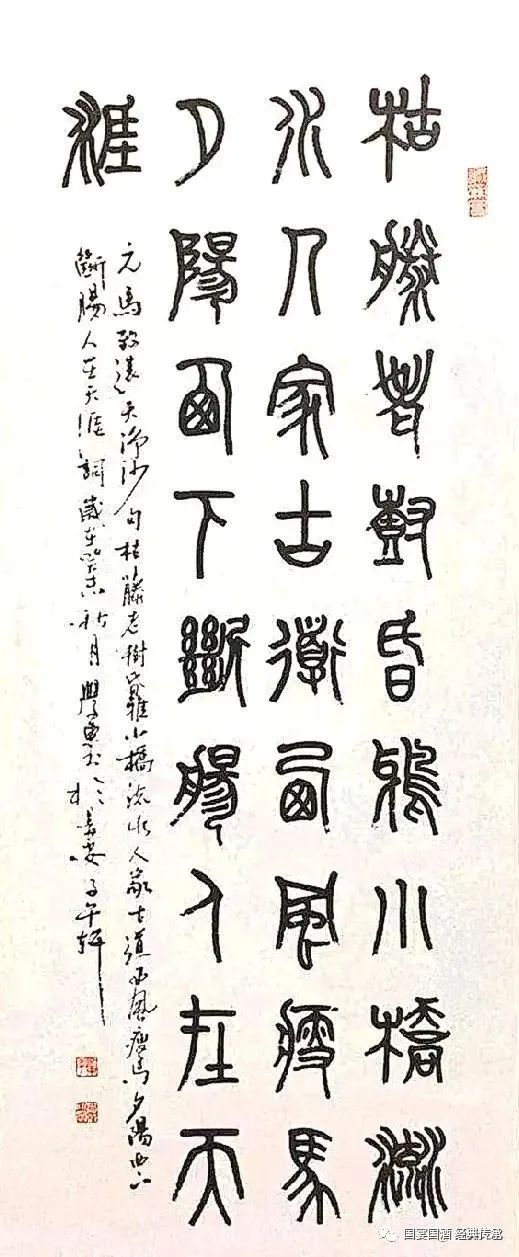 枯藤老樹昏鴉小橋流
水人家古道西風瘦馬
夕陽西下斷腸人在天
涯
元馬致遠天淨沙句枯藤老樹昏鴉小橋流水人家古道西風瘦馬夕陽西下
斷腸人在天涯詞歲在秋月於長安子午軒
国宴国酒 经典传承